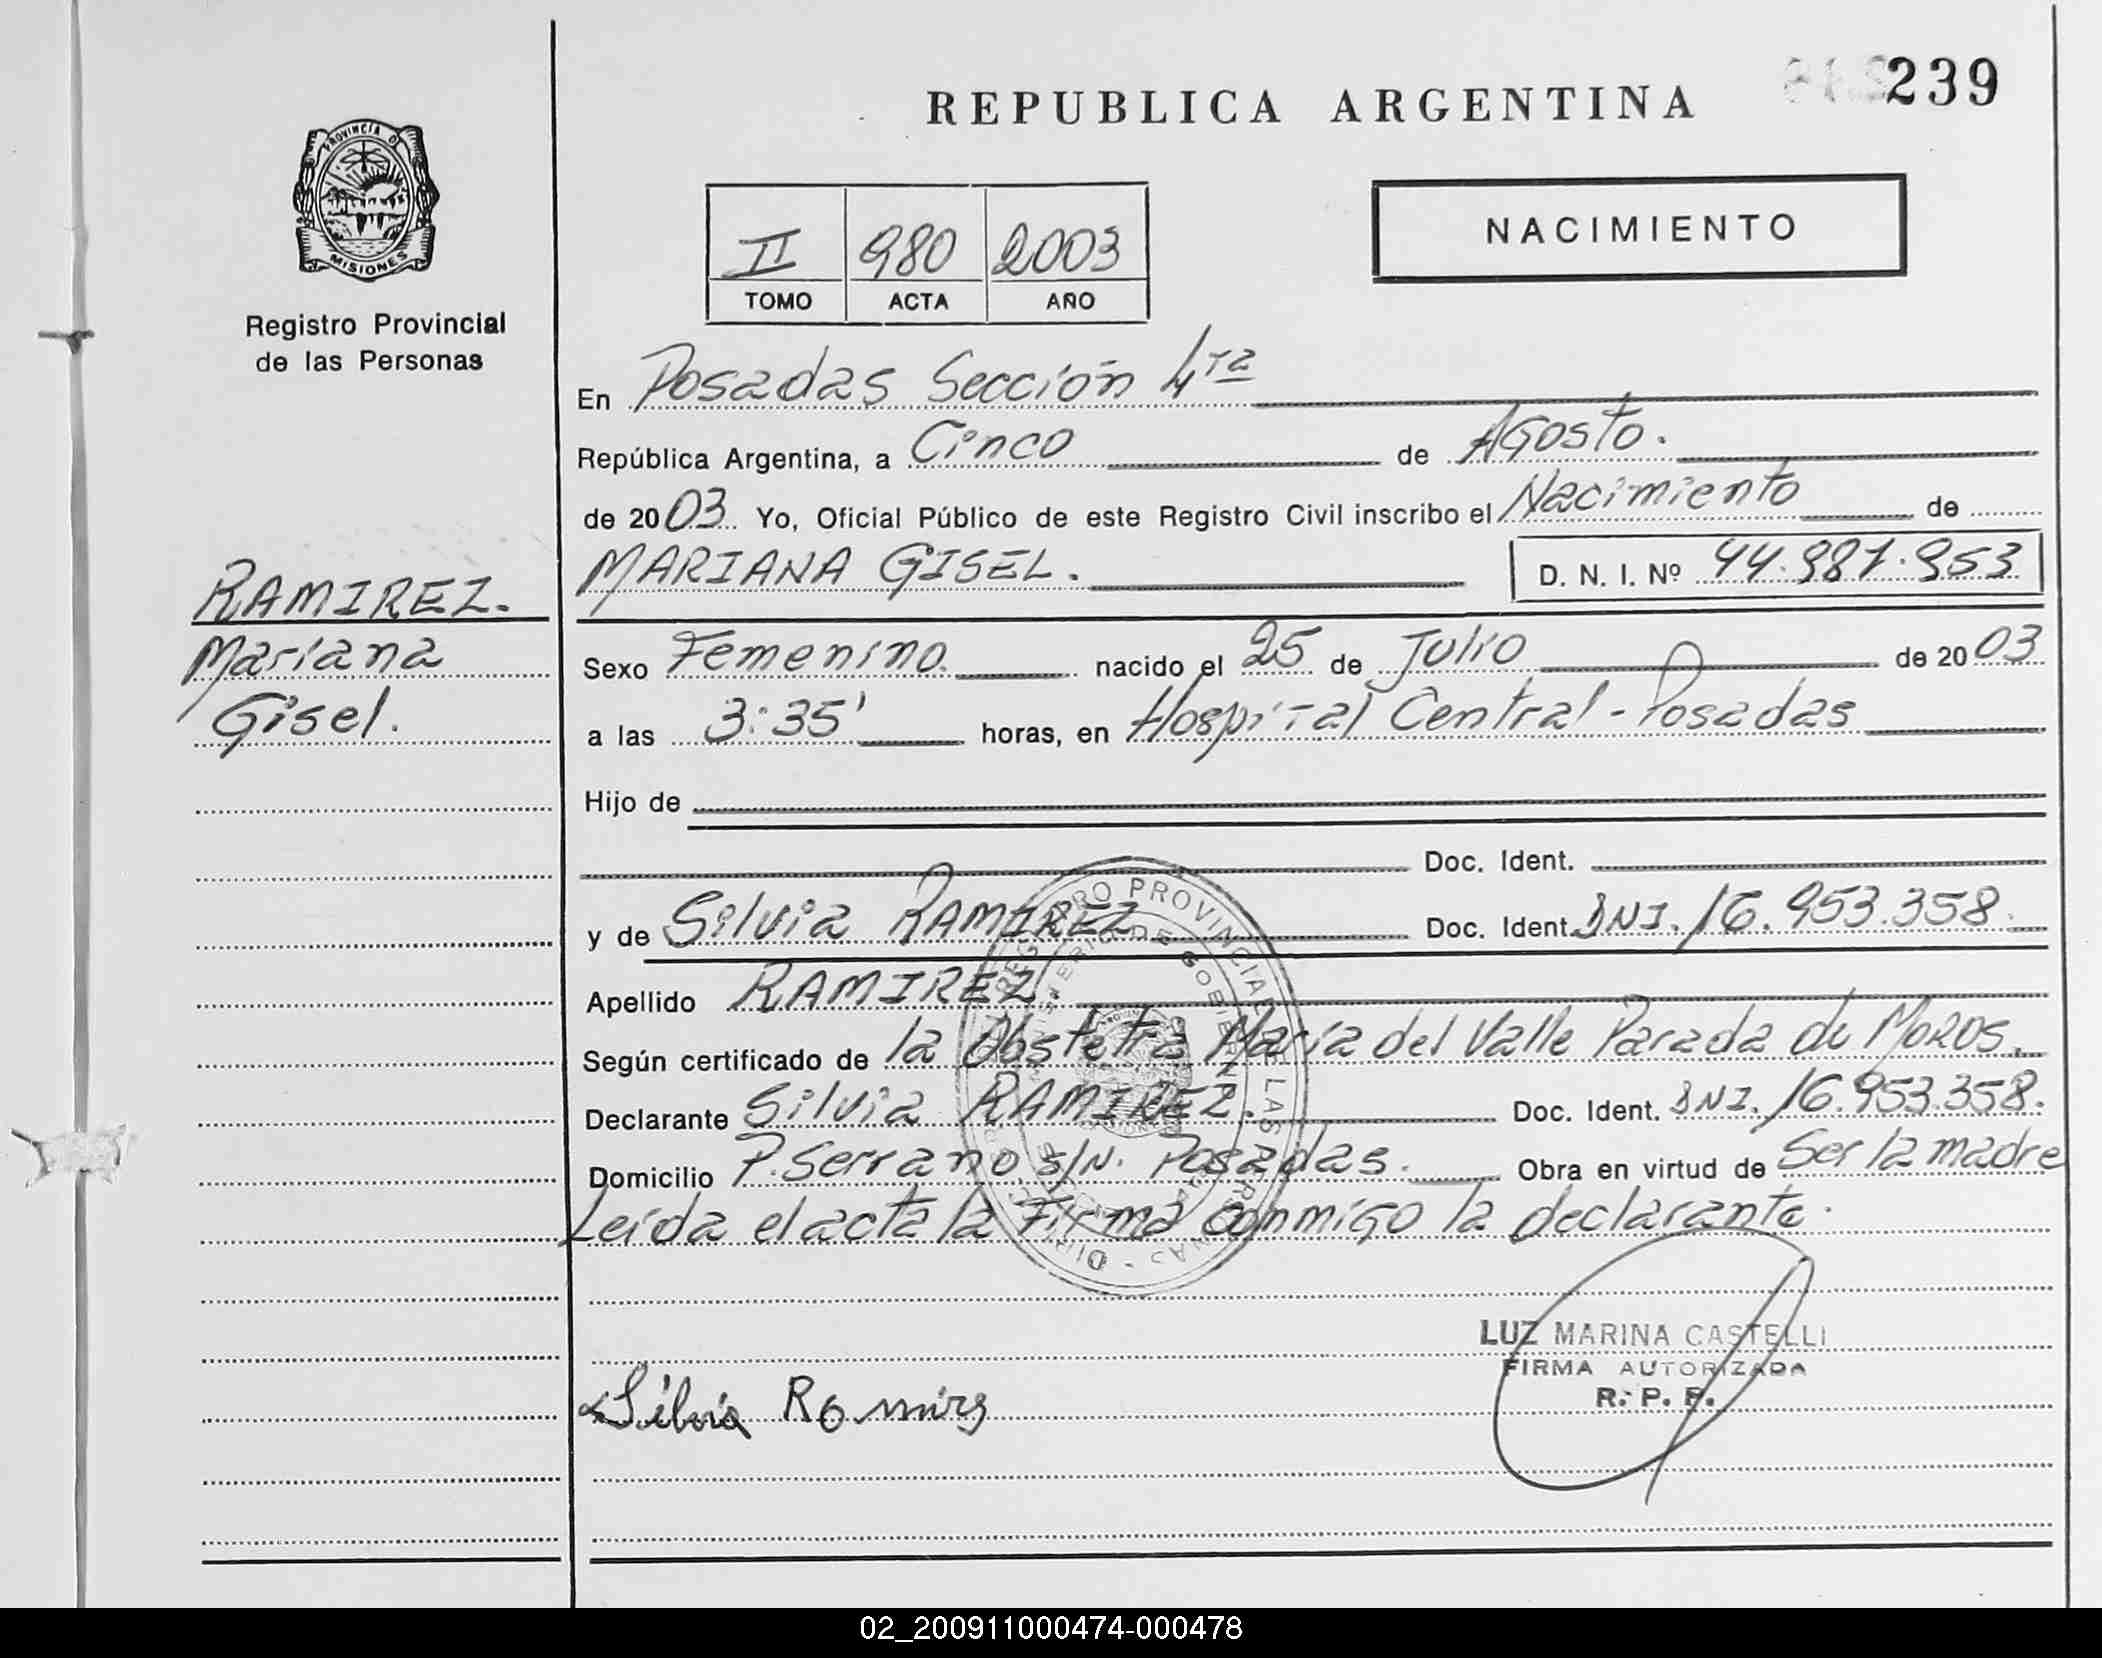 239
REPUBLICA ARGENTINA
PROVINCIA D
MISIONES
Registro Provincial
de las Personas
NACIMIENTO
II 980 2003
TOMO ACTA AÑO
En Posadas Sección 4ta
República Argentina, a Cinco de Agosto.
de 2003 Yo, Oficial Público de este Registro Civil inscribo el Nacimiento de
RAMIREZ. MARIANA GISEL. D. N. I. Nº 44.987.953
Mariana Sexo Femenino. nacido el 25 de Julio de 2003
Gisel. a las 3:35' horas, en Hospital Central - Posadas
Hijo de
Doc. Ident.
y de Silvia RAMIREZ Doc. Ident. DNI. 16.953.358.
Apellido RAMIREZ.
Según certificado de la Obstetra María del Valle Parada de MOROS.
Declarante Silvia RAMIREZ. Doc. Ident. DNI. 16.953.358.
Domicilio P. Serrano s/N. Posadas. Obra en virtud de Ser la madre
Leída el acta la Firma conmigo la declarante.
LUZ MARINA CASTELLI
FIRMA AUTORIZADA
R. P. P.
Silvia Ramirez
02_200911000474-000478